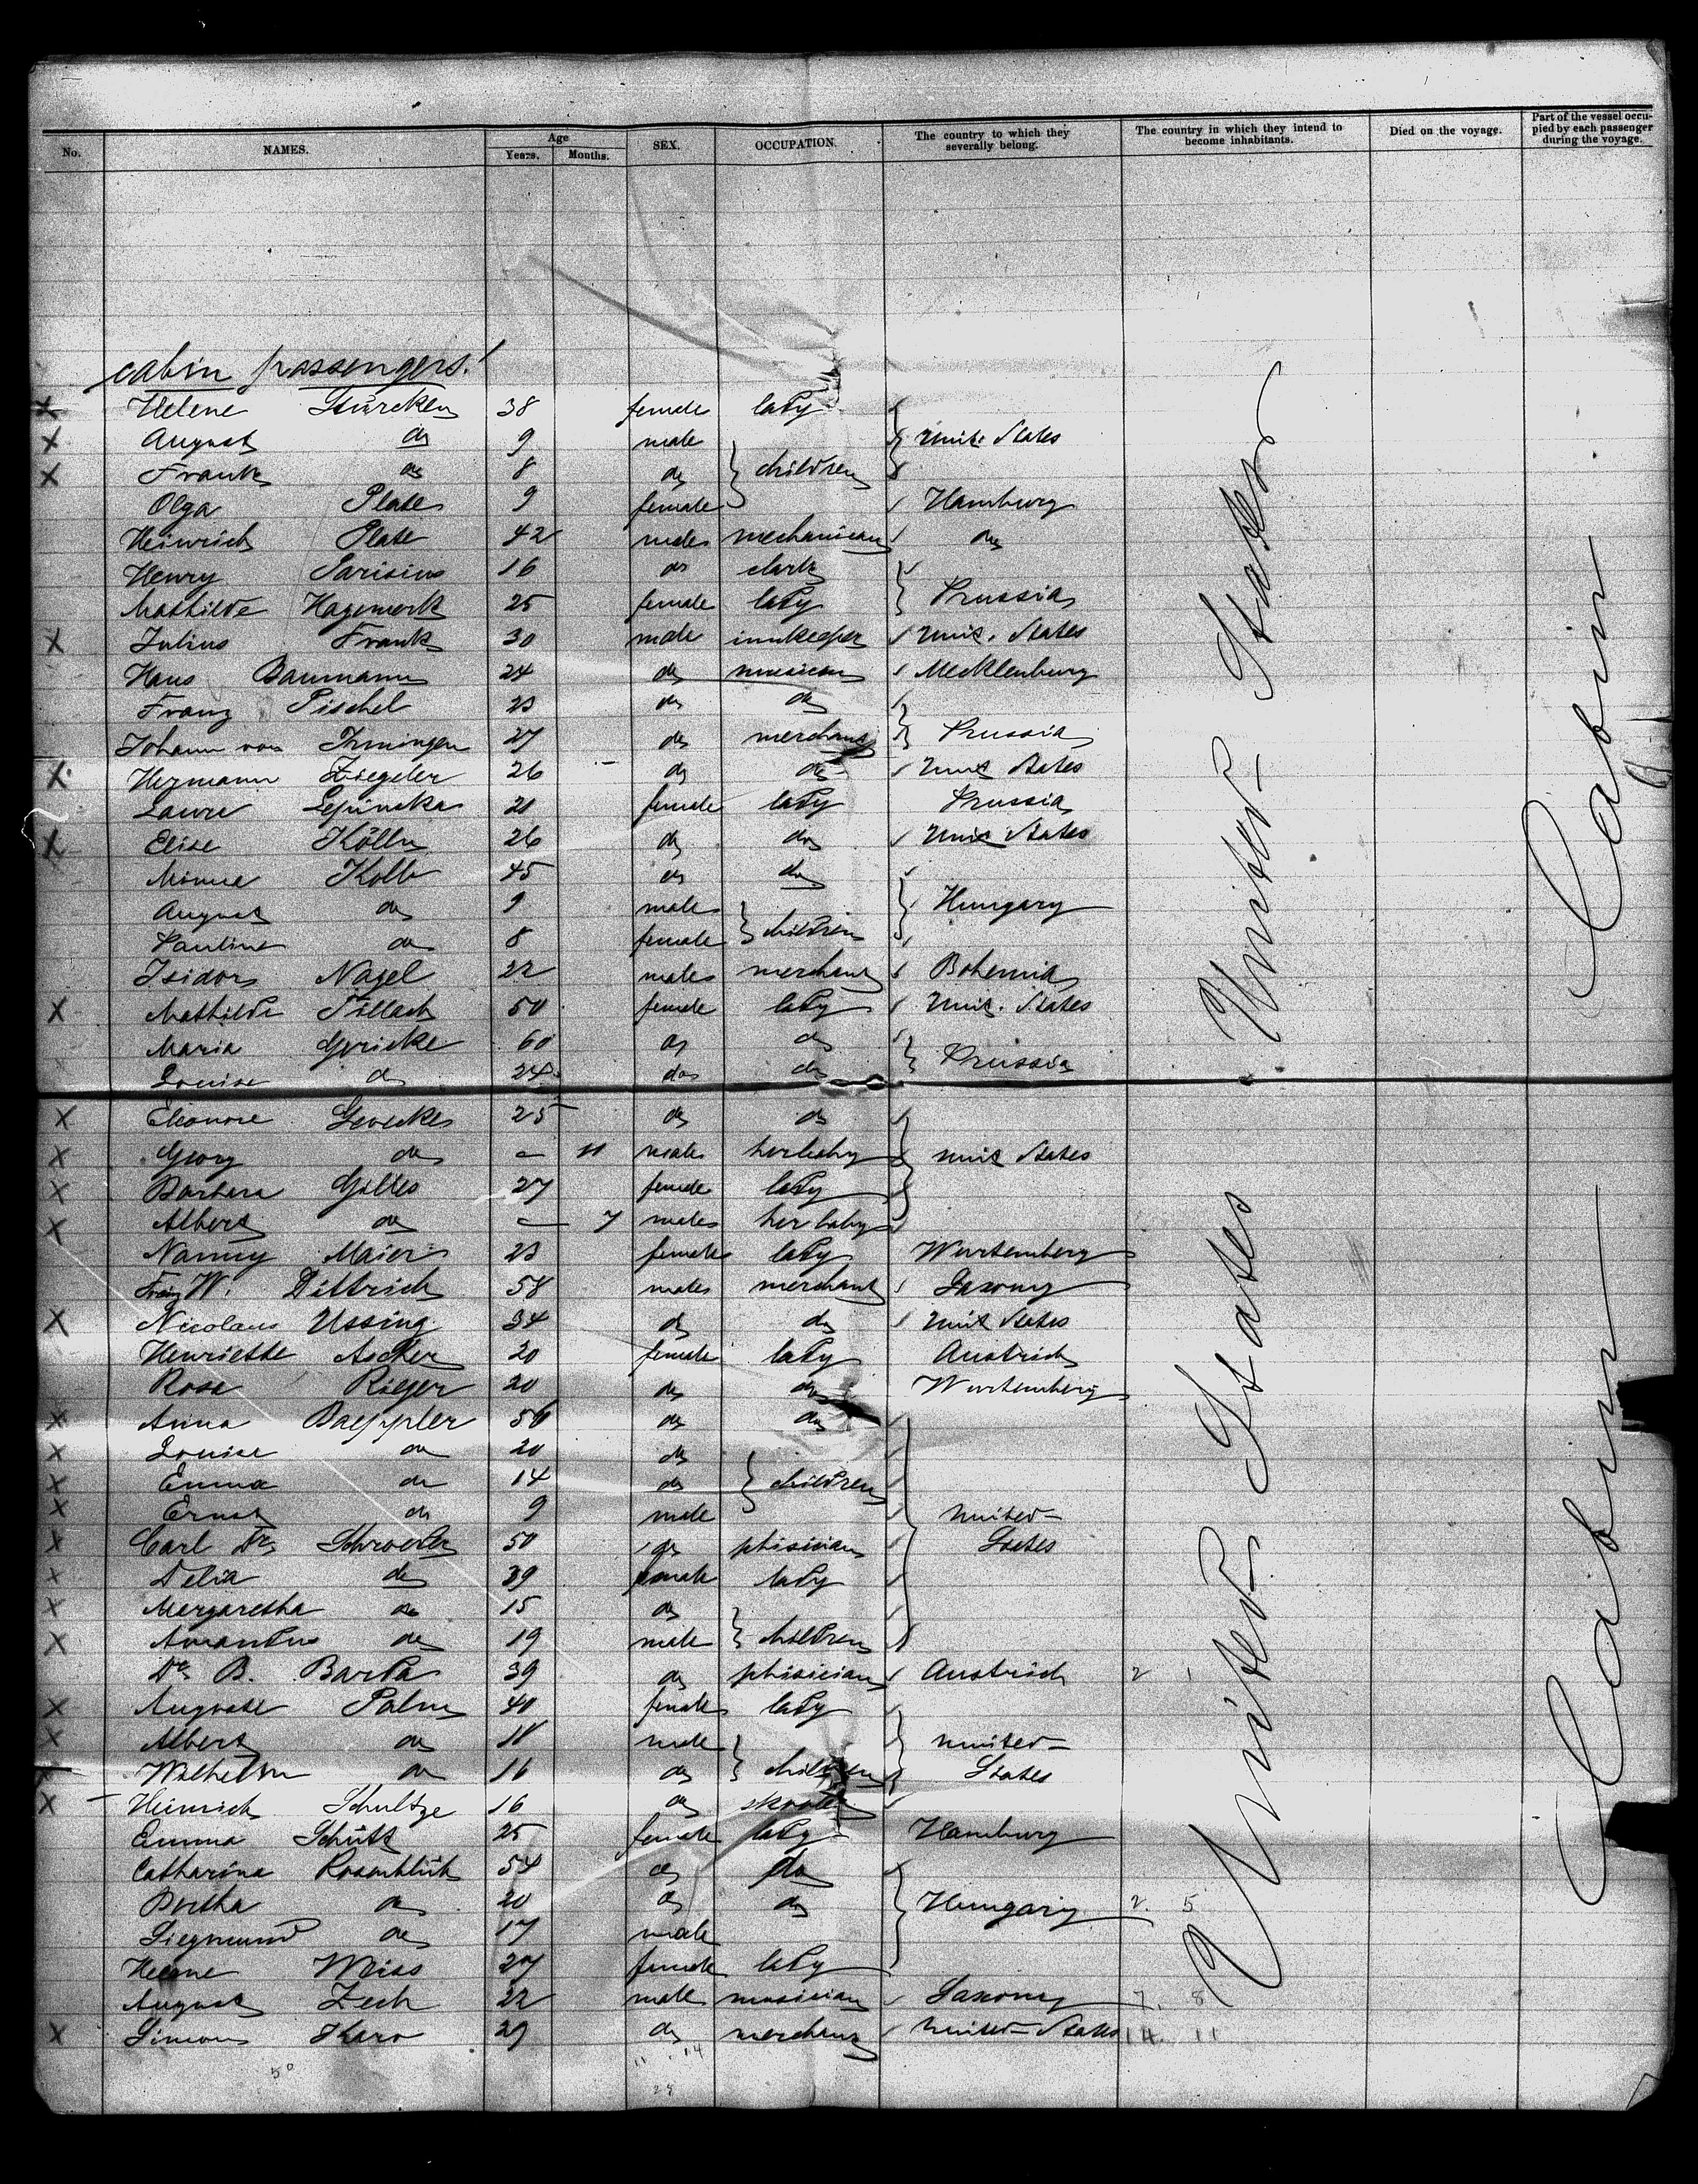 No. NAMES. Age Years. Months. SEX. OCCUPATION. The country to which they severally belong. The country in which they intend to become inhabitants. Died on the voyage. Part of the vessel occupied by each passenger during the voyage.
cabin passengers!
X Helene Stürcken 38 female lady
X August do 9 male Unit. States
X Frank do 8 do children
Olga Plate 9 female Hamburg
Heinrich Plate 42 male mechanican do
Henry Sarisius 16 do clark
Mathilde Hagemerk 25 female lady Prussia
X Julius Frank 30 male innkeeper Unit. States
Hans Baumann 24 do musican Mecklenburg
Franz Pischel 23 do do
Johann von 27 do merchant Prussia
X Hermann Ziegeler 26 do do Unit States
Laura Lepinska 21 female lady Prussia
X Elise Kölln 26 do do Unit States
Minna Kolb 45 do do
August do 9 male Hungary
Pauline do 8 female children
Isidor Nagel 22 male merchant Bohemia
X Mathilde 50 female lady Unit. States
Maria Gericke 60 do do
Louise do 24 do do Prussia
X Eleonore Geveckes 25 do do
X Georg do – 11 male her baby Unit States
X Barbara Gilles 27 female lady
X Albert do – 7 male her baby
Nanny Maier 23 female lady Wurtemberg
Franz W. Dittrich 58 male merchant Saxony
X Nicolaus Ussing 34 do do Unit States
Henriette Ascher 20 female lady Austria
Rosa Rieger 20 do do Wurtemberg
X Anna Baeppler 56 do do
X Louise do 20 do
X Emma do 14 do children
X Ernst do 9 male United
X Carl Dr. Schroeder 50 do phisician States
X Delia do 39 female lady
X Margaretha do 15 do
X Amandus do 19 male children
Dr. B. Barda 39 do phisician Austria 2 1
X Auguste Palm 40 female lady
X Albert do 18 male United
X Wilhelm do 16 do children States
X Heinrich Schultze 16 do
Emma Schütt 25 female lady Hamburg
Catharina Rosenblüth 54 do do
Bertha do 20 do do Hungary 2. 5
Siegmund do 17 male
Helene Weiss 27 female lady
August Zech 22 male musician Saxony 7. 8
X Simon Karo 29 do merchant United States 14. 11
50 11 14
28
United States
United States
Cabin
Cabin